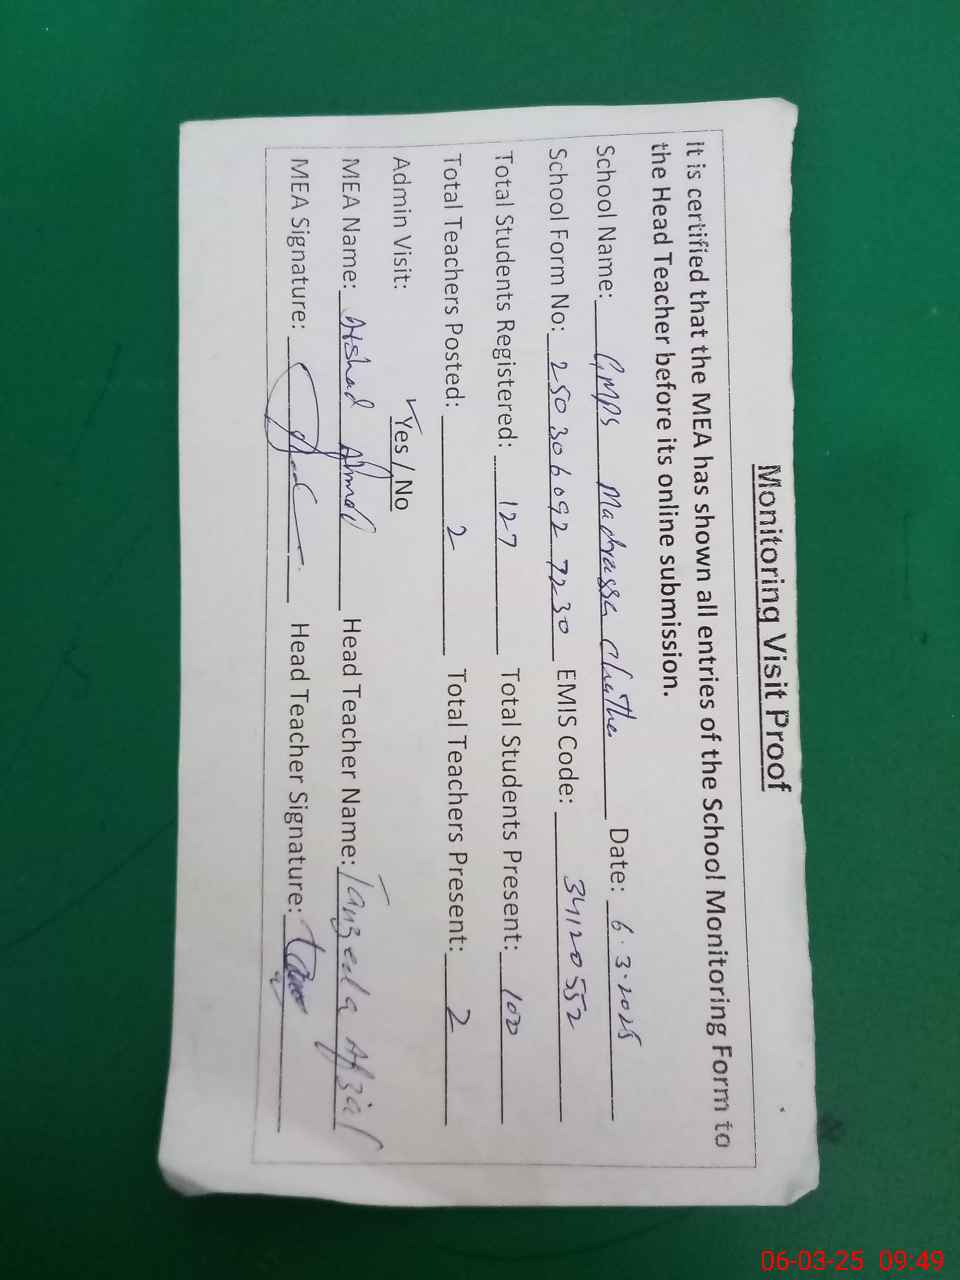 Monitoring Visit Proof
It is certified that the MEA has shown all entries of the School Monitoring Form to
the Head Teacher before its online submission.
School Name: GMPS Madrassa Chatha Date: 6.3.2025
School Form No: 250306092 7230 EMIS Code: 34120552
Total Students Registered: 127 Total Students Present: 100
Total Teachers Posted: 2 Total Teachers Present: 2
Admin Visit: Yes / No
MEA Name: Arshad Ahmad Head Teacher Name: Tanzeela Afzal
MEA Signature: Head Teacher Signature:
06-03-25 09:49